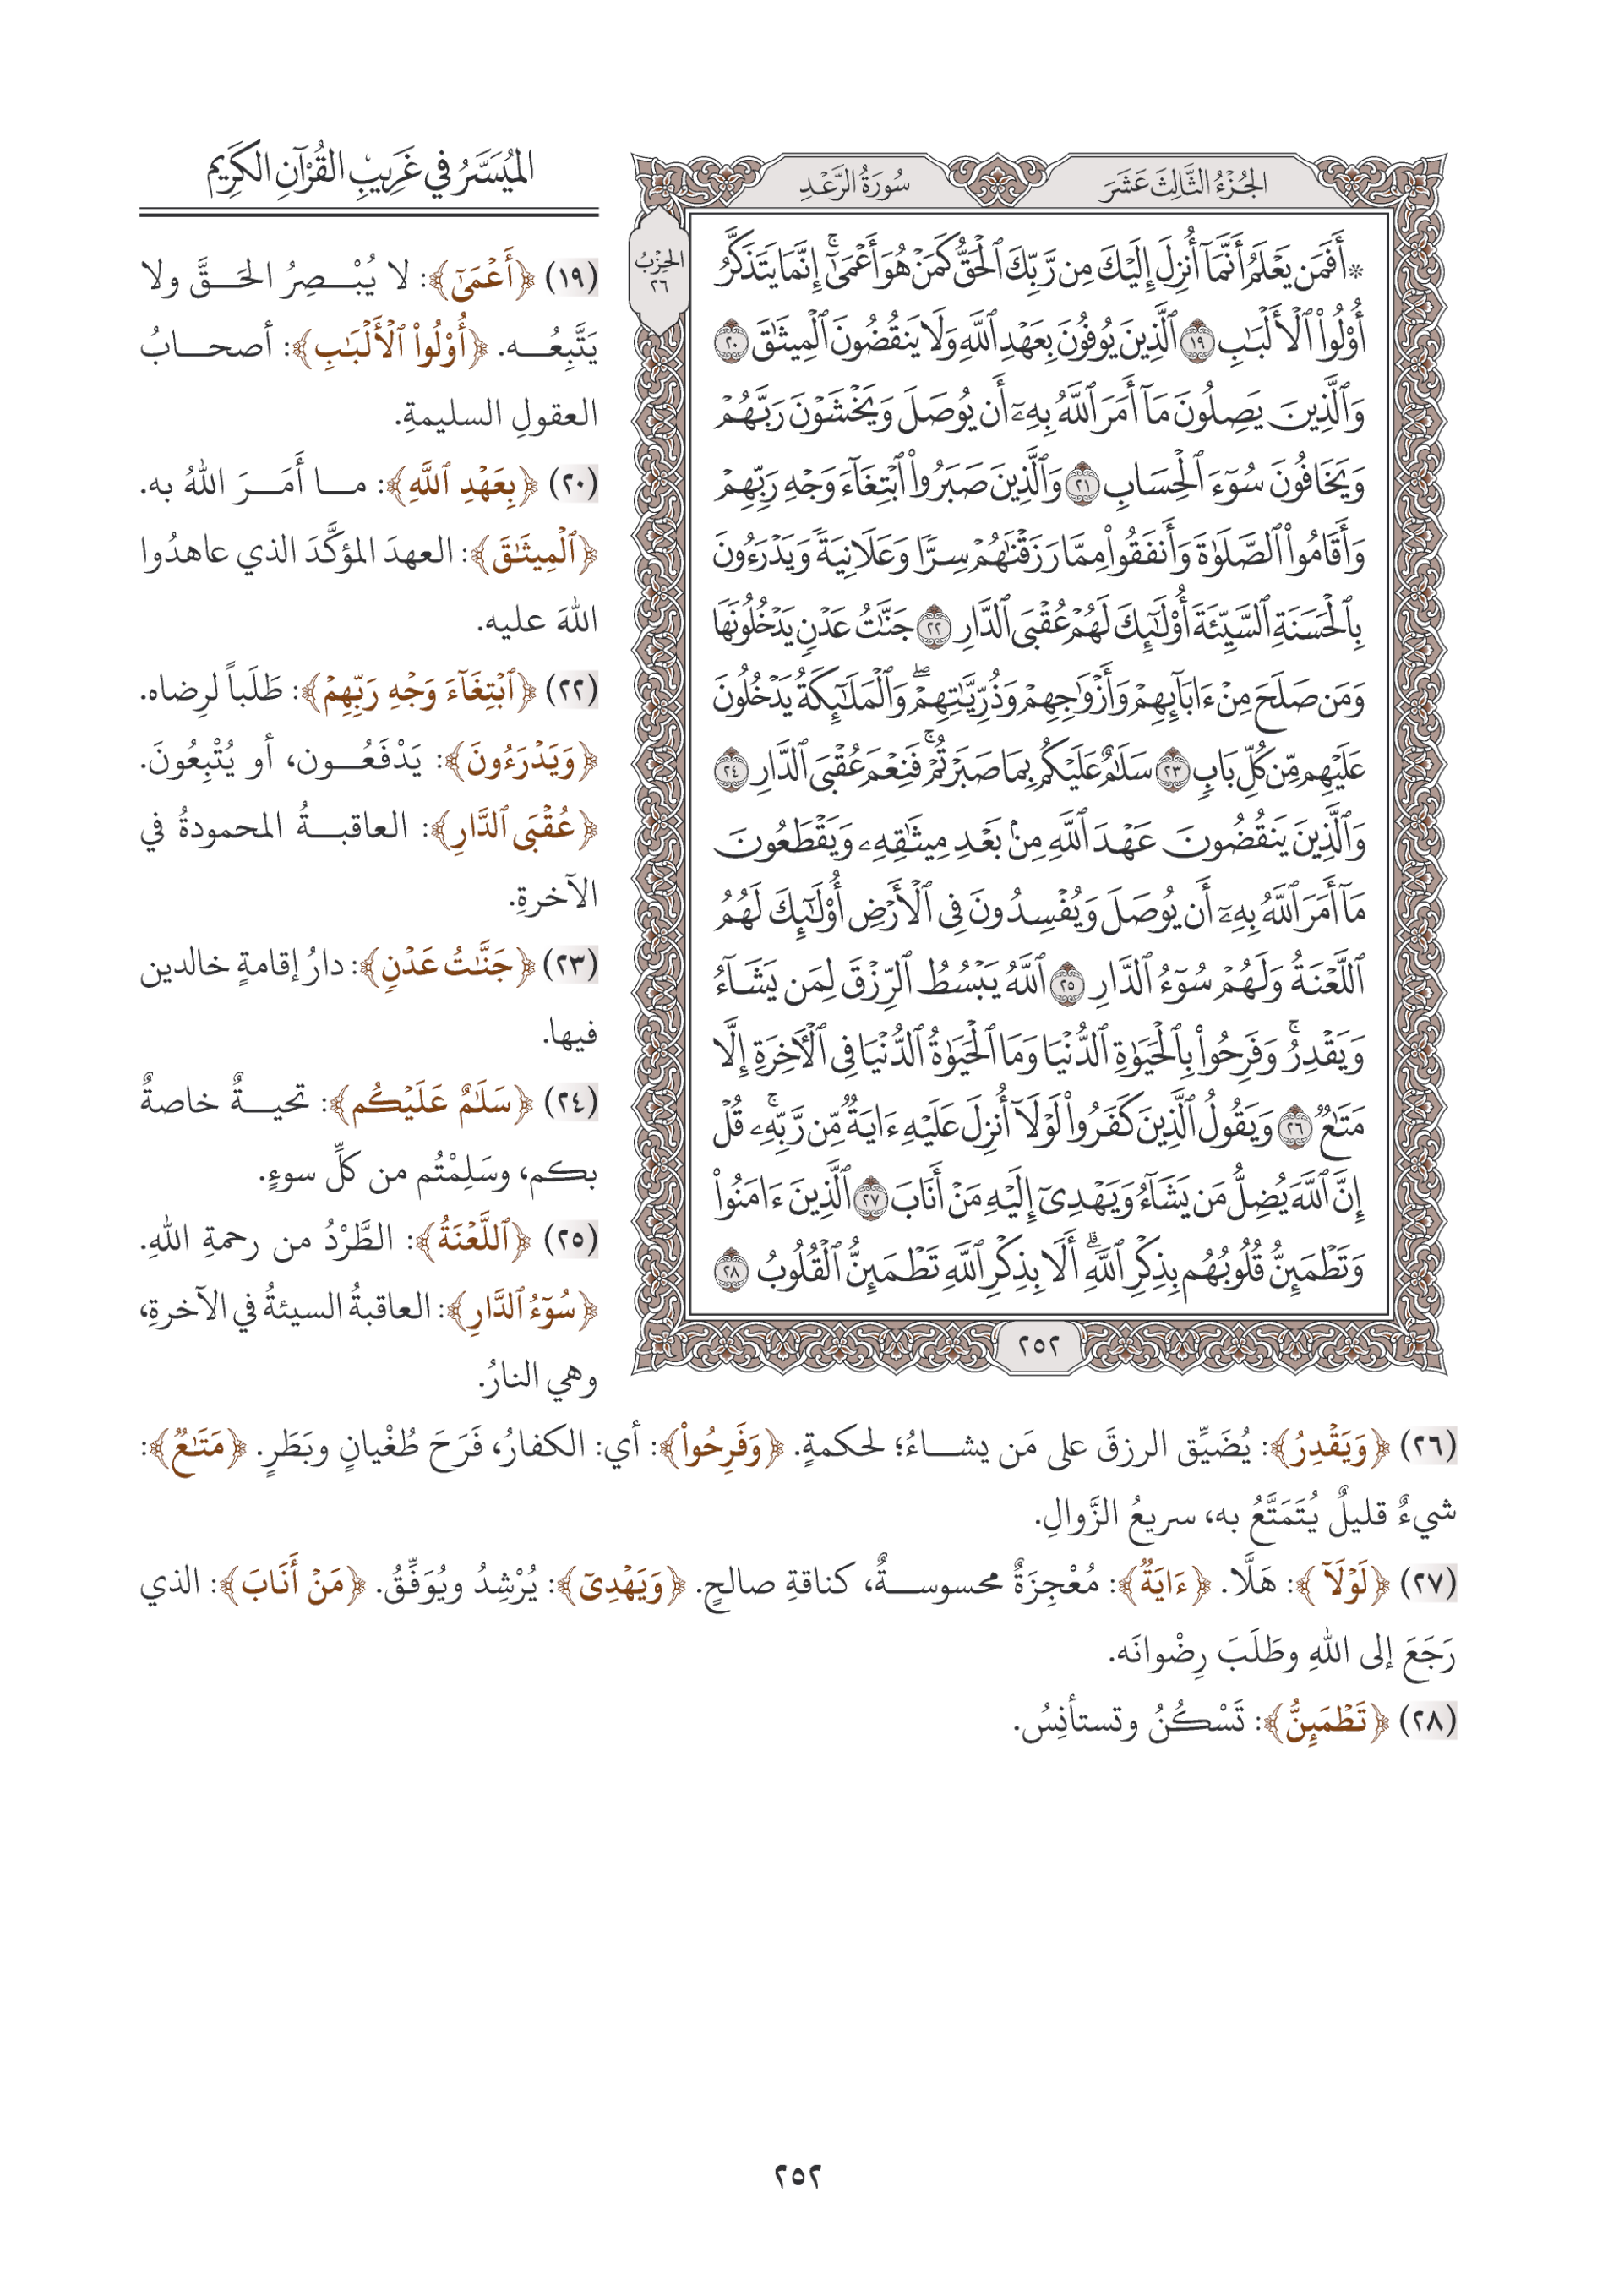 الجُزْءُ الثَّالِثَ عَشَرَ
سُورَةُ الرَّعْدِ
الحِزْبُ
٢٦
* أَفَمَن يَعْلَمُ أَنَّمَآ أُنزِلَ إِلَيْكَ مِن رَّبِّكَ ٱلْحَقُّ كَمَنْ هُوَ أَعْمَىٰٓۚ إِنَّمَا يَتَذَكَّرُ
أُوْلُواْ ٱلْأَلْبَٰبِ ١٩ ٱلَّذِينَ يُوفُونَ بِعَهْدِ ٱللَّهِ وَلَا يَنقُضُونَ ٱلْمِيثَٰقَ ٢٠
وَٱلَّذِينَ يَصِلُونَ مَآ أَمَرَ ٱللَّهُ بِهِۦٓ أَن يُوصَلَ وَيَخْشَوْنَ رَبَّهُمْ
وَيَخَافُونَ سُوٓءَ ٱلْحِسَابِ ٢١ وَٱلَّذِينَ صَبَرُواْ ٱبْتِغَآءَ وَجْهِ رَبِّهِمْ
وَأَقَامُواْ ٱلصَّلَوٰةَ وَأَنفَقُواْ مِمَّا رَزَقْنَٰهُمْ سِرًّا وَعَلَانِيَةً وَيَدْرَءُونَ
بِٱلْحَسَنَةِ ٱلسَّيِّئَةَ أُوْلَٰٓئِكَ لَهُمْ عُقْبَى ٱلدَّارِ ٢٢ جَنَّٰتُ عَدْنٍ يَدْخُلُونَهَا
وَمَن صَلَحَ مِنْ ءَابَآئِهِمْ وَأَزْوَٰجِهِمْ وَذُرِّيَّٰتِهِمْۖ وَٱلْمَلَٰٓئِكَةُ يَدْخُلُونَ
عَلَيْهِم مِّن كُلِّ بَابٍ ٢٣ سَلَٰمٌ عَلَيْكُم بِمَا صَبَرْتُمْۚ فَنِعْمَ عُقْبَى ٱلدَّارِ ٢٤
وَٱلَّذِينَ يَنقُضُونَ عَهْدَ ٱللَّهِ مِنۢ بَعْدِ مِيثَٰقِهِۦ وَيَقْطَعُونَ
مَآ أَمَرَ ٱللَّهُ بِهِۦٓ أَن يُوصَلَ وَيُفْسِدُونَ فِي ٱلْأَرْضِ أُوْلَٰٓئِكَ لَهُمُ
ٱللَّعْنَةُ وَلَهُمْ سُوٓءُ ٱلدَّارِ ٢٥ ٱللَّهُ يَبْسُطُ ٱلرِّزْقَ لِمَن يَشَآءُ
وَيَقْدِرُۚ وَفَرِحُواْ بِٱلْحَيَوٰةِ ٱلدُّنْيَا وَمَا ٱلْحَيَوٰةُ ٱلدُّنْيَا فِي ٱلْأٓخِرَةِ إِلَّا
مَتَٰعٌ ٢٦ وَيَقُولُ ٱلَّذِينَ كَفَرُواْ لَوْلَآ أُنزِلَ عَلَيْهِ ءَايَةٌ مِّن رَّبِّهِۦۚ قُلْ
إِنَّ ٱللَّهَ يُضِلُّ مَن يَشَآءُ وَيَهْدِيٓ إِلَيْهِ مَنْ أَنَابَ ٢٧ ٱلَّذِينَ ءَامَنُواْ
وَتَطْمَئِنُّ قُلُوبُهُم بِذِكْرِ ٱللَّهِۗ أَلَا بِذِكْرِ ٱللَّهِ تَطْمَئِنُّ ٱلْقُلُوبُ ٢٨
٢٥٢
المُيَسَّرُ في غَرِيبِ القُرْآنِ الكَرِيمِ
(١٩) ﴿أَعْمَىٰٓ﴾: لا يُبْصِرُ الحَقَّ ولا
يَتَّبِعُه. ﴿أُوْلُواْ ٱلْأَلْبَٰبِ﴾: أصحابُ
العقولِ السليمةِ.
(٢٠) ﴿بِعَهْدِ ٱللَّهِ﴾: ما أَمَرَ اللهُ به.
﴿ٱلْمِيثَٰقَ﴾: العهدَ المؤكَّدَ الذي عاهدُوا
اللهَ عليه.
(٢٢) ﴿ٱبْتِغَآءَ وَجْهِ رَبِّهِمْ﴾: طَلَباً لرِضاه.
﴿وَيَدْرَءُونَ﴾: يَدْفَعُون، أو يُتْبِعُونَ.
﴿عُقْبَى ٱلدَّارِ﴾: العاقبةُ المحمودةُ في
الآخرةِ.
(٢٣) ﴿جَنَّٰتُ عَدْنٍ﴾: دارُ إقامةٍ خالدين
فيها.
(٢٤) ﴿سَلَٰمٌ عَلَيْكُم﴾: تحيةٌ خاصةٌ
بكم، وسَلِمْتُم من كلِّ سوءٍ.
(٢٥) ﴿ٱللَّعْنَةُ﴾: الطَّرْدُ من رحمةِ اللهِ.
﴿سُوٓءُ ٱلدَّارِ﴾: العاقبةُ السيئةُ في الآخرةِ،
وهي النارُ.
(٢٦) ﴿وَيَقْدِرُ﴾: يُضَيِّق الرزقَ على مَن يشاءُ؛ لحكمةٍ. ﴿وَفَرِحُواْ﴾: أي: الكفارُ، فَرَحَ طُغْيانٍ وبَطَرٍ. ﴿مَتَٰعٌ﴾:
شيءٌ قليلٌ يُتَمَتَّعُ به، سريعُ الزَّوالِ.
(٢٧) ﴿لَوْلَآ﴾: هَلَّا. ﴿ءَايَةٌ﴾: مُعْجِزَةٌ محسوسةٌ، كناقةِ صالحٍ. ﴿وَيَهْدِيٓ﴾: يُرْشِدُ ويُوَفِّقُ. ﴿مَنْ أَنَابَ﴾: الذي
رَجَعَ إلى اللهِ وطَلَبَ رِضْوانَه.
(٢٨) ﴿تَطْمَئِنُّ﴾: تَسْكُنُ وتستأنِسُ.
٢٥٢